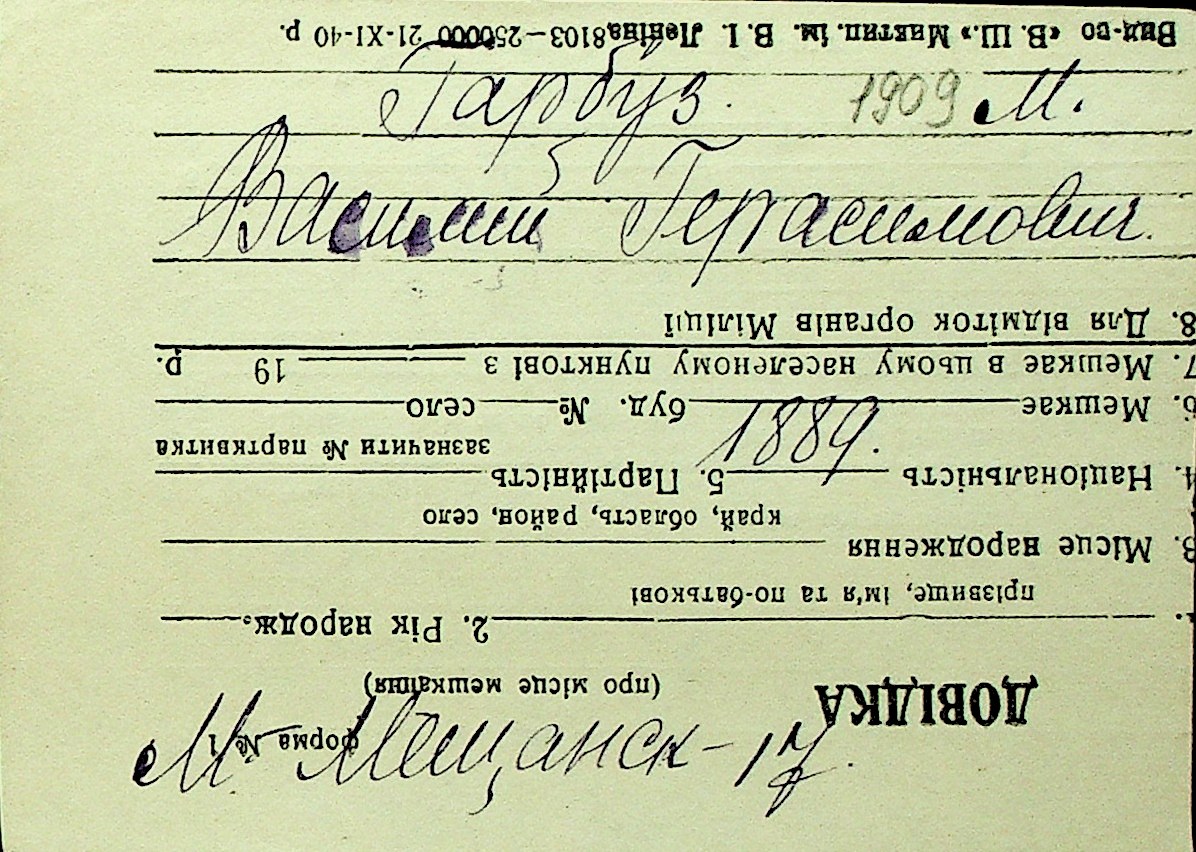 Гарбуз. 1909 М.
Василий Герасимович.
1889.
М. Мещанск-17.
ДОВІДКА
форма № 1
(про місце мешкання)
1. 2. Рік народж.
прізвище, ім'я та по-батькові
3. Місце народження
край, область, район, село
4. Національність 5. Партійність
зазначити № партквитка
6. Мешкає буд. № село
7. Мешкає в цьому населеному пунктові з 19 р.
8. Для відміток органів Міліції
Вид-во «В. Ш.» Миктип. ім. В. І. Леніна 8103—250000 21-XI-40 р.